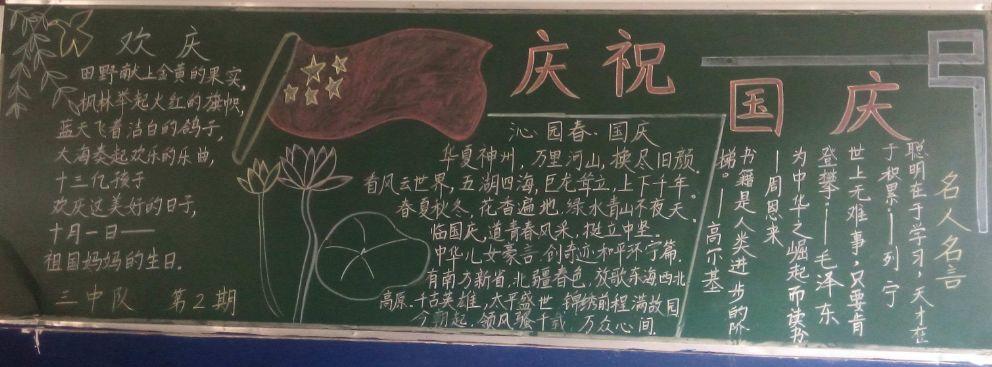 欢庆
田野献上金黄的果实,
枫林举起火红的旗帜,
蓝天飞着洁白的鸽子,
大海奏起欢乐的乐曲,
十三亿孩子
欢庆这美好的日子,
十月一日——
祖国妈妈的生日.
三中队 第2期
庆祝
国庆
沁园春·国庆
华夏神州,万里河山,换尽旧颜.
看风云世界,五湖四海,巨龙耸立,上下千年.
春夏秋冬,花香遍地,绿水青山不夜天.
临国庆,道青春风采,挺立中坚.
中华儿女豪言,创奇迹和平环宁篇.
有南方新省,北疆春色,放歌东海西北
高原.千古英雄,太平盛世,锦绣前程满故园
今朝起,领风骚千载,万众心间.
名人名言
聪明在于学习,天才在
于积累——列宁
世上无难事,只要肯
登攀——毛泽东
为中华之崛起而读书
——周恩来
书籍是人类进步的阶
梯。——高尔基